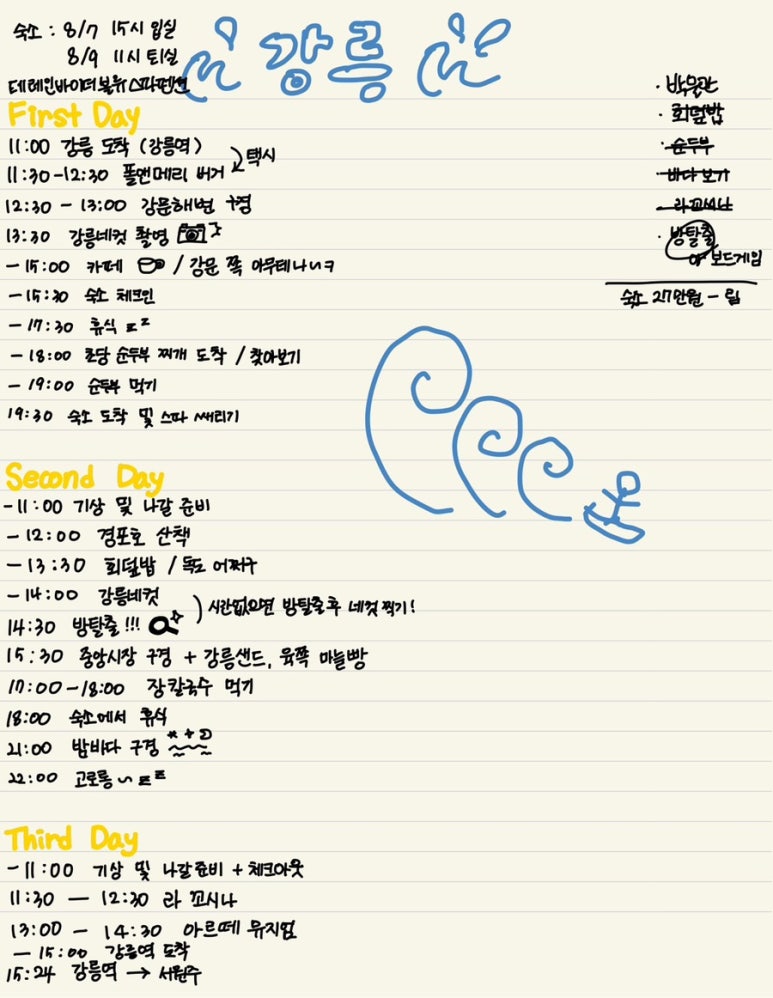 숙소 : 8/7 15시 입실
8/9 11시 퇴실
테레인바이더블유 스파펜션
강릉
· 박물관
· 회덮밥
· 순두부
· 바다 보기
· 라 꼬시나
· 방탈출
or 보드게임
숙소 27만원 - 림
First Day
11:00 강릉 도착 (강릉역)
택시
11:30-12:30 폴앤메리 버거
12:30 - 13:00 강문해변 구경
13:30 강릉네컷 촬영
- 15:00 카페 / 강문 쪽 아무데나ㄱ
- 15:30 숙소 체크인
- 17:30 휴식 z z
- 18:00 초당 순두부 찌개 도착 / 찾아보기
- 19:00 순두부 먹기
19:30 숙소 도착 및 스파 때리기
Second Day
-11:00 기상 및 나갈 준비
- 12:00 경포호 산책
- 13:30 회덮밥 / 독도 어쩌구
- 14:00 강릉네컷
시간없으면 방탈출 후 네컷 찍기!
14:30 방탈출!!!
15:30 중앙시장 구경 + 강릉샌드, 육쪽 마늘빵
17:00-18:00 장칼국수 먹기
18:00 숙소에서 휴식
21:00 밤바다 구경
22:00 고로롱 ~ z z
Third Day
-11:00 기상 및 나갈 준비 + 체크아웃
11:30 — 12:30 라 꼬시나
13:00 - 14:30 아르떼 뮤지엄
- 15:00 강릉역 도착
15:24 강릉역 → 서원주